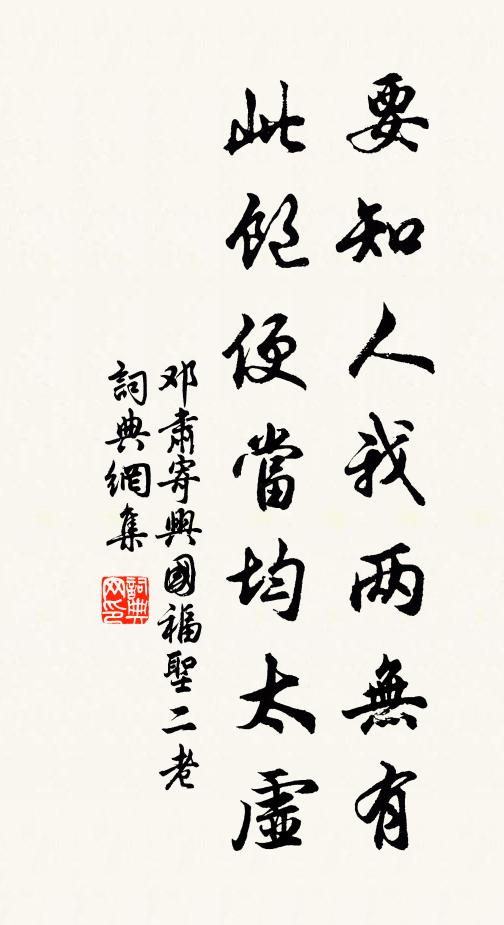 要知人我两無有
此飽便當均太虛
邓肅寄興國福聖二老
詞典網集